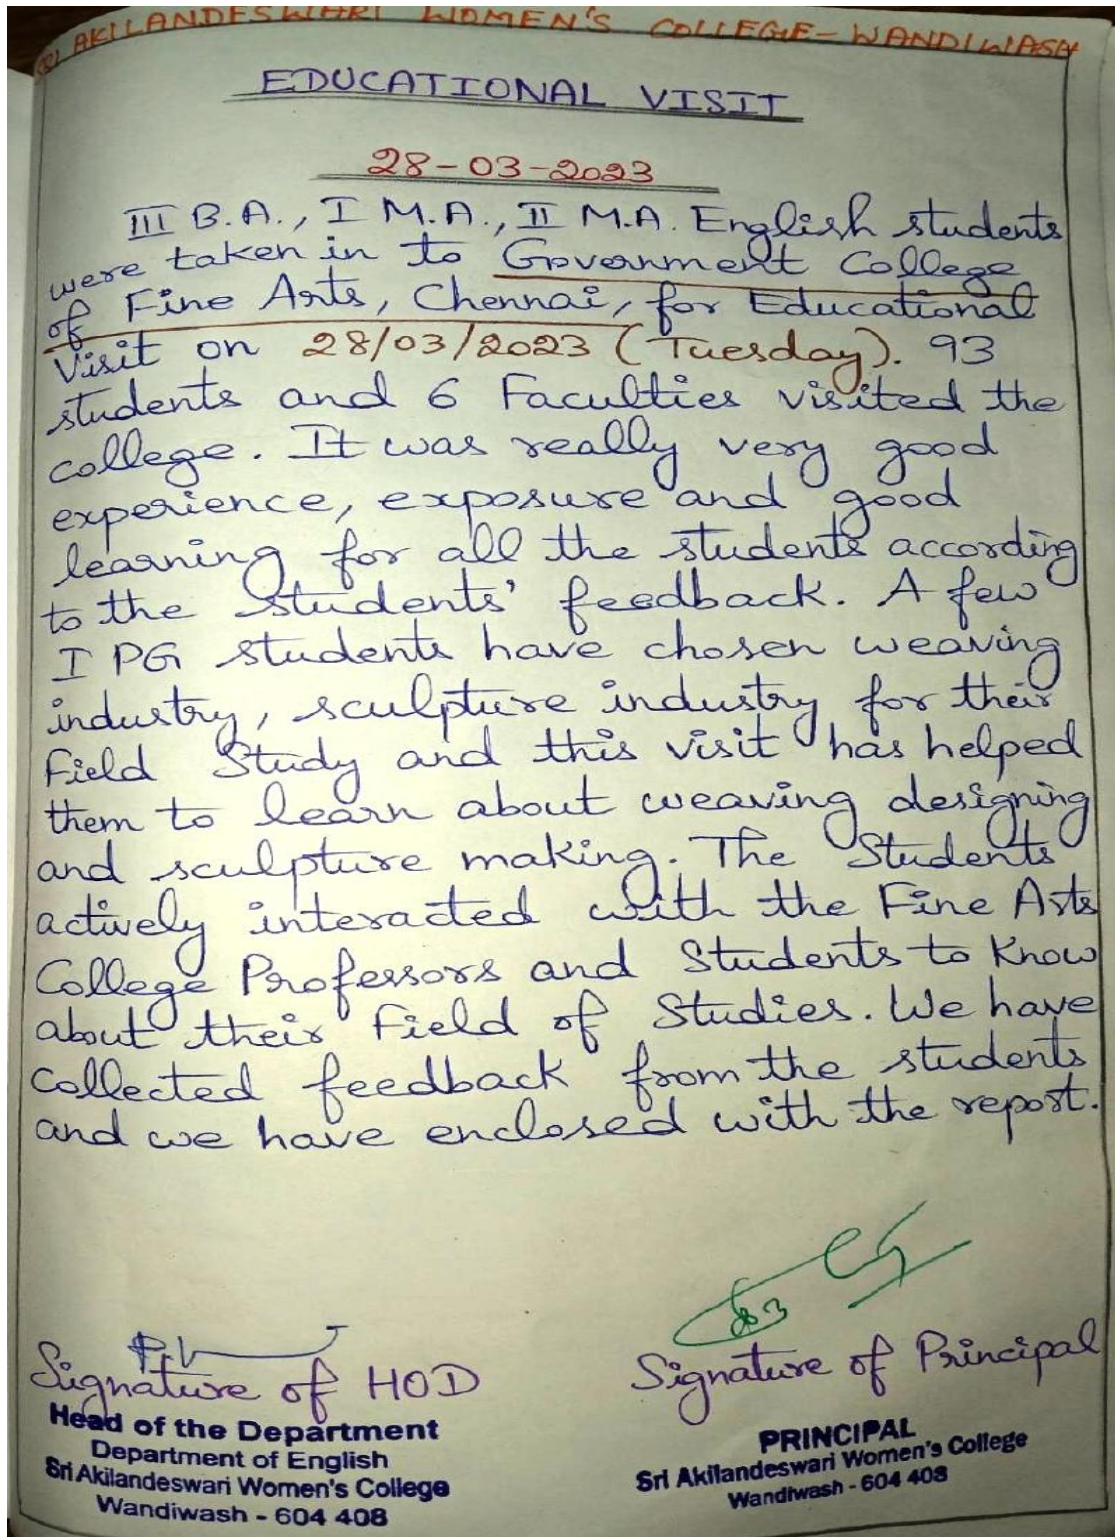 SRI AKILANDESWARI WOMEN'S COLLEGE-WANDIWASH
EDUCATIONAL VISIT
28-03-2023
III B.A., I M.A., II M.A. English students
were taken in to Government College
of Fine Arts, Chennai, for Educational
Visit on 28/03/2023 (Tuesday). 93
students and 6 Faculties visited the
college. It was really very good
experience, exposure and good
learning for all the students according
to the students' feedback. A few
I PG students have chosen weaving
industry, sculpture industry for their
Field Study and this visit has helped
them to learn about weaving designing
and sculpture making. The Students
actively interacted with the Fine Arts
College Professors and Students to Know
about their Field of Studies. We have
collected feedback from the students
and we have enclosed with the report.
Signature of HOD
Head of the Department
Department of English
Sri Akilandeswari Women's College
Wandiwash - 604 408
Signature of Principal
PRINCIPAL
Sri Akilandeswari Women's College
Wandiwash - 604 408